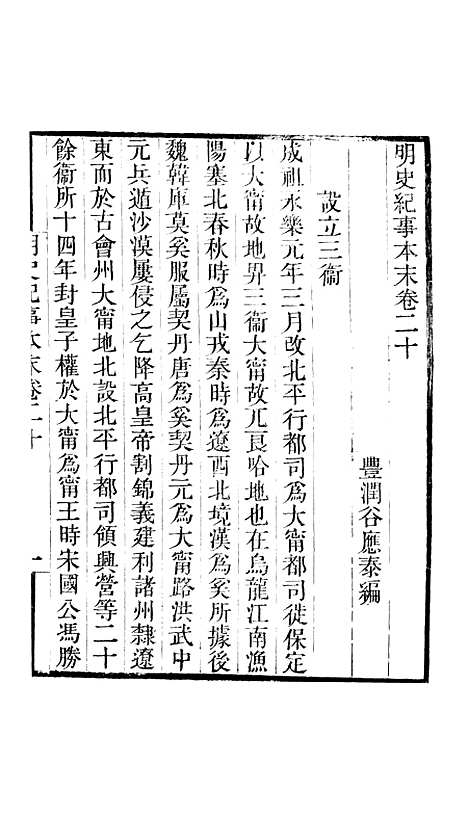 明史紀事本末卷二十
豐潤谷應泰編
設立三衞
成祖永樂元年三月改北平行都司爲大甯都司徙保定
以大甯故地畀三衞大甯故兀良哈地也在烏龍江南漁
陽塞北春秋時爲山戎秦時爲遼西北境漢爲奚所據後
魏韓庫莫奚服屬契丹唐爲奚契丹元爲大甯路洪武中
元兵遁沙漠屢侵之乞降高皇帝割錦義建利諸州隸遼
東而於古會州大甯地北設北平行都司領興營等二十
餘衞所十四年封皇子權於大甯爲甯王時宋國公馮勝
明史紀事本末卷二十
一